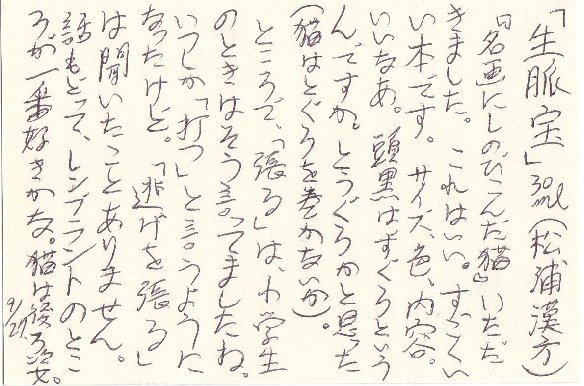 「生脈宝」30ml(松浦漢方)
『名画にしのびこんだ猫』いただ
きました。これはいい。すっごくい
い本です。サイズ、色、内容。
いいなあ。頭黒はずぐろという
んですか。とうぐろかと思った
(猫はとぐろを巻かないか)。
ところで、「張る」は、小学生
のときはそう言ってましたね。
いつしか「打つ」と言うように
なったけど。「逃げを張る」
は聞いたことありません。
話もどって、レンブラントのとこ
ろが一番好きかな。猫は後ろ姿。
9/27